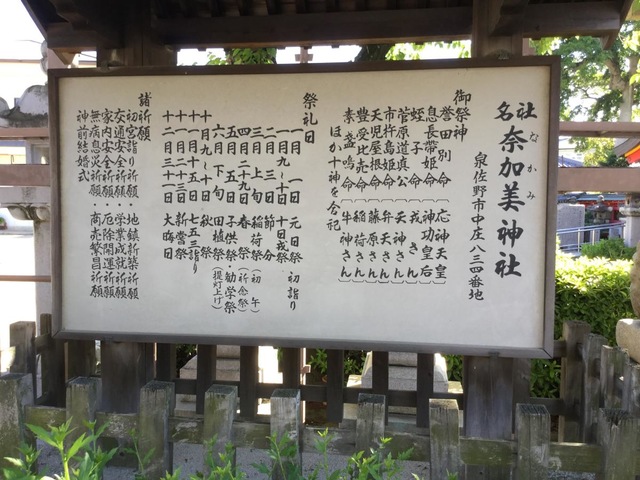 名社 奈加美神社
なかみ
泉佐野市中庄八三四番地
御祭神
誉田別命（応神天皇）
息長帯姫命（神功皇后）
蛭子命（戎さん）
菅原道真公（天神さん）
市杵島姫命（弁天さん）
天児屋根命（藤原さん）
豊受比売命（稲荷さん）
素盞嗚命（牛神さん）
ほか十神を合祀
祭礼日
一月一日 元日祭 初詣り
一月九～十日 十日戎祭
二月三日 節分
三月上旬 稲荷祭（初午）
四月二十九日 春祭（祈念祭）
五月五日 子供祭 勧学祭
六月下旬 田植祭（提灯上げ）
十月九～十日 秋祭
十一月十五日 七五三詣り
十一月二十三日 新嘗祭
十二月三十一日 大晦日
諸祈願
初宮詣り祈願・地鎮新築祈願
交通安全祈願・学業成就祈願
家内安全祈願・厄除開運祈願
無病息災祈願・商売繁昌祈願
神前結婚式